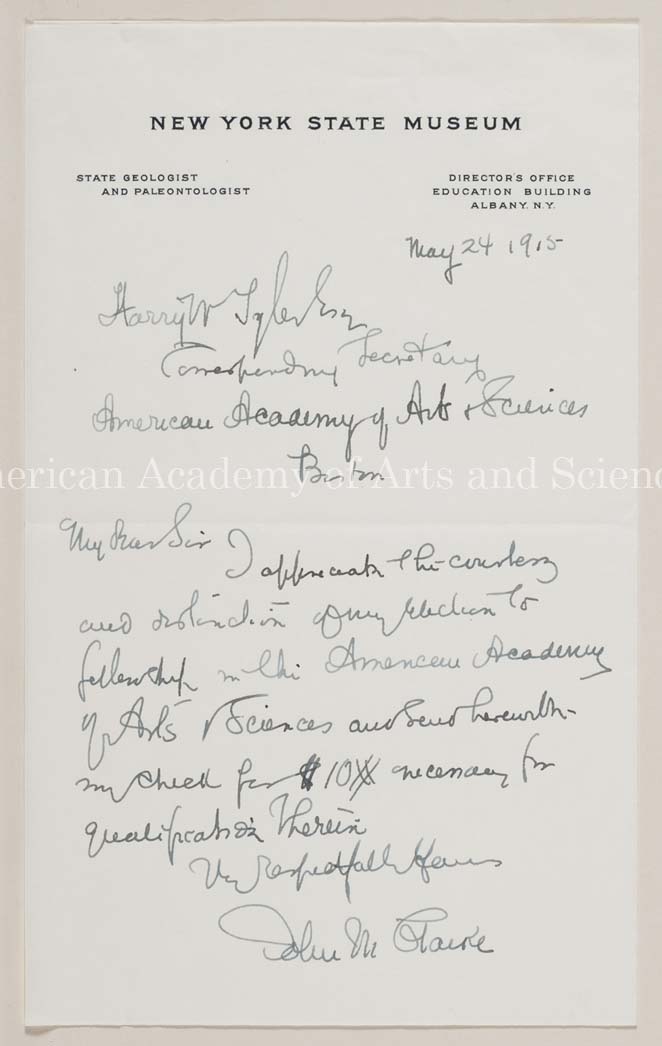 NEW YORK STATE MUSEUM
STATE GEOLOGIST
AND PALEONTOLOGIST
DIRECTOR'S OFFICE
EDUCATION BUILDING
ALBANY. N.Y.
May 24 1915
Harry W Tyler Esq
Corresponding Secretary
American Academy of Arts & Sciences
Boston
merican Academy of Arts and Scienc
My Dear Sir I appreciate the courtesy
and distinction of my election to
fellowship in the American Academy
of Arts & Sciences and send herewith
my check for $10 necessary for
qualification therein
Very respectfully Yours
John M Clarke